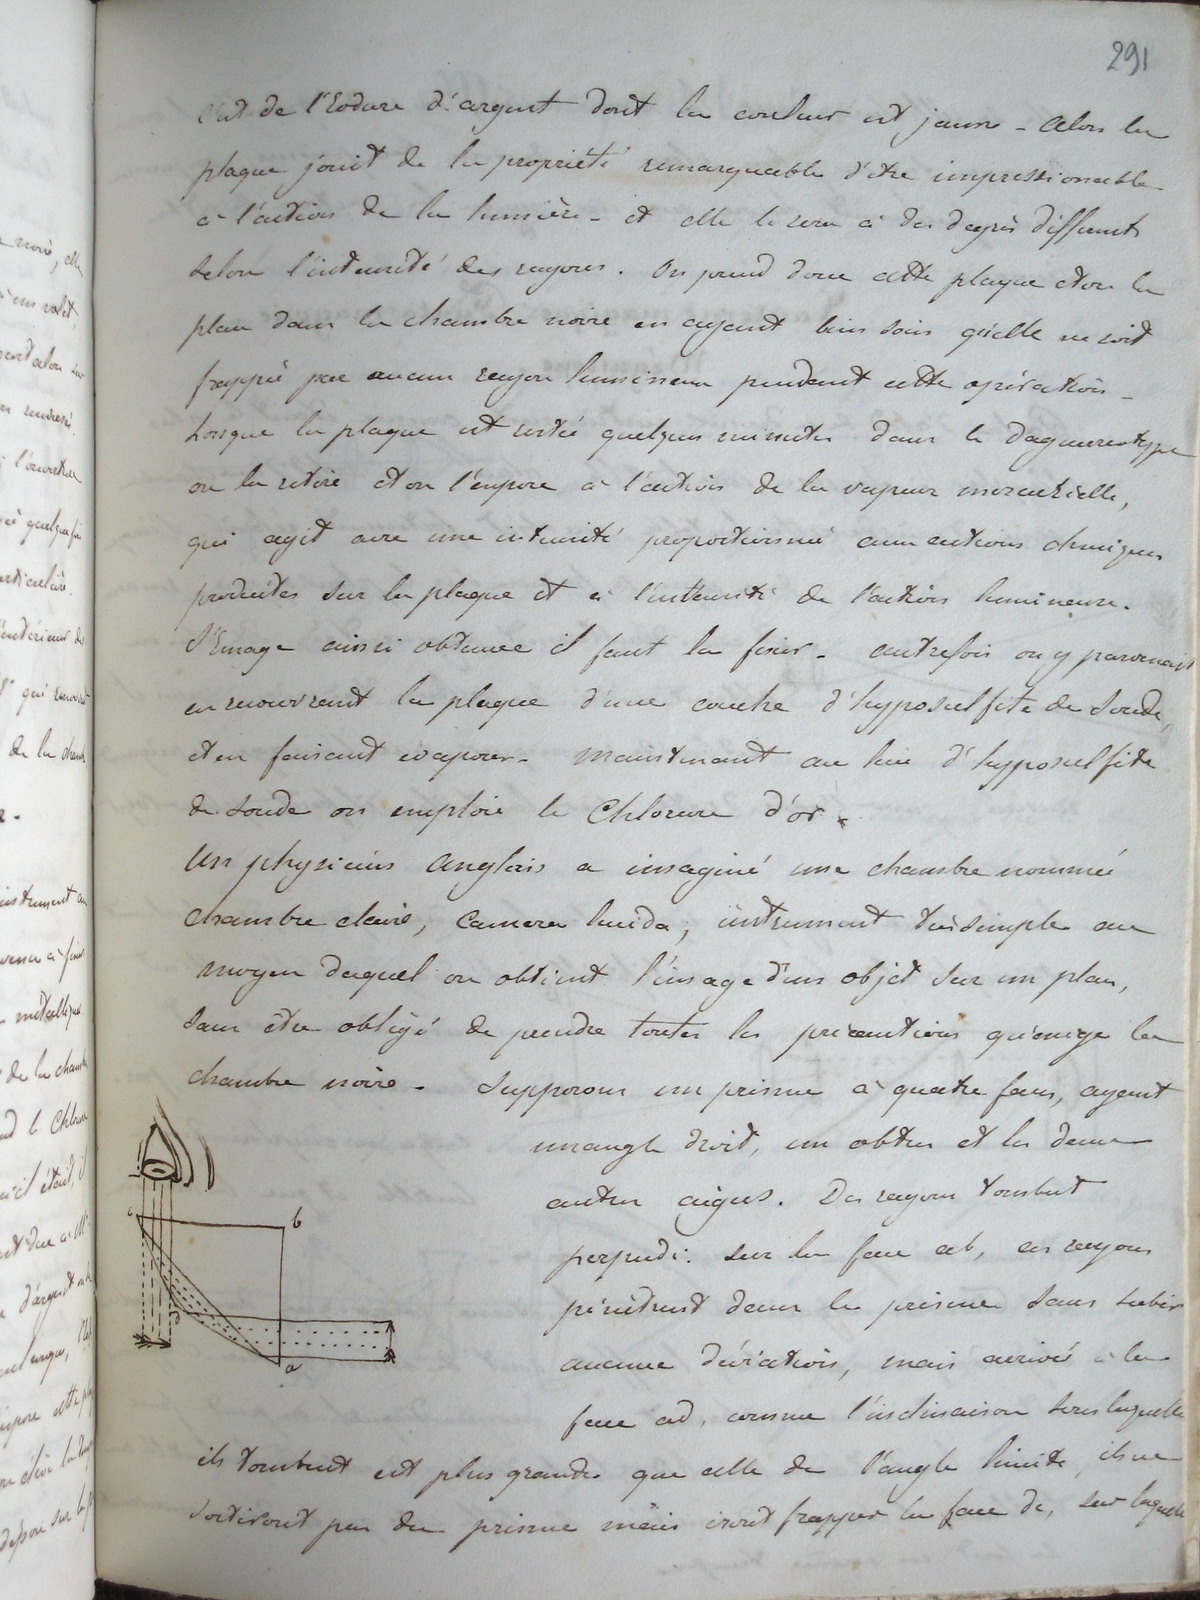 291
C'est de l'Iodure d'argent dont la couleur est jaune - Alors la
plaque jouit de la propriété remarquable d'être impressionable
à l'action de la lumière - et elle le sera à des degrès différents
selon l'intensité des rayons. On prend donc cette plaque et on la
place dans la chambre noire en ayant bien soin qu'elle ne soit
frappée par aucun rayon lumineux pendant cette opération -
Lorsque la plaque est restée quelques minutes dans le daguerreotype
on la retire et on l'expose à l'action de la vapeur mercurielle,
qui agit avec une intensité proportionnée aux actions chimiques
produites sur la plaque et à l'intensité de l'action lumineuse.
L'Image ainsi obtenue il faut la fixer - autrefois on y parvenait
en recouvrant la plaque d'une couche d'hyposulfite de Soude,
et en faisant evaporer - maintenant au lieu d'hyposulfite
de soude on emploie le Chlorure d'or.
Un physicien Anglais a imaginé une chambre nommée
Chambre claire, Camera lucida, instrument très simple au
moyen duquel on obtient l'image d'un objet sur un plan,
sans être obligé de prendre toutes les précautions qu'exige la
chambre noire - Supposons un prisme à quatre faces, ayant
un angle droit, un obtus et les deux
autres aigus. Des rayons tombent
perpendi: sur la face ab, ces rayons
pénètrent dans le prisme sans subir
aucune déviation, mais arrivés à la
face ad, comme l'inclinaison sous laquelle
ils tombent est plus grande que celle de l'angle limite, ils ne
sortiront pas du prisme mais iront frapper la face dc, sur laquelle
c
b
d
a